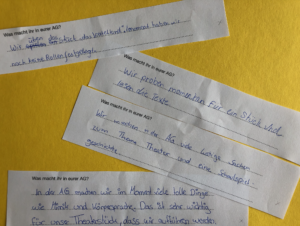 Was macht ihr in eurer AG?
Wir üben das Stück "
haben wir
noch keine Rollen festgelegt.
Was macht ihr in eurer AG?
Wir proben momentan für ein Stück und
lesen die Texte
Was macht ihr in eurer AG?
Wir machen in der AG viele lustige Sachen
zum Thema Theater und eine
Was macht ihr in eurer AG?
In der AG machen wir im Moment viele tolle Dinge
wie Mimik und Körpersprache. Das ist sehr wichtig
für unser Theaterstück, dass wir aufführen werden.